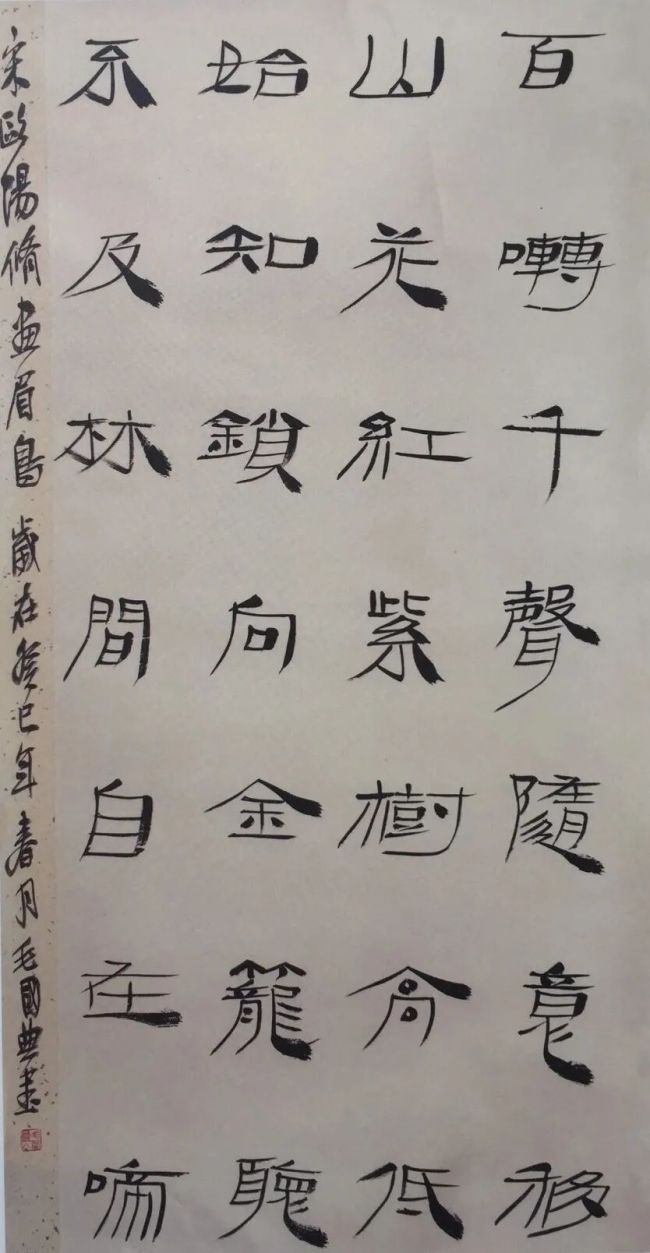 百囀千聲隨意移
山花紅紫樹高低
始知鎖向金籠聽
不及林間自在啼
宋歐陽脩畫眉鳥 歲在癸巳年春月毛國典書